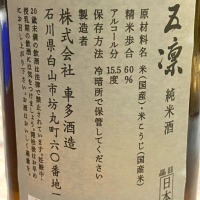 五凛
純米酒
原材料名 米(国産)・米こうじ(国産米)
精米歩合 60%
アルコール分 15.5度
保存方法 冷暗所で保管してください
製造者
株式会社 車多酒造
石川県白山市坊丸町六〇番地一
20歳未満の飲酒は法律で禁止されています。妊娠中や
日本